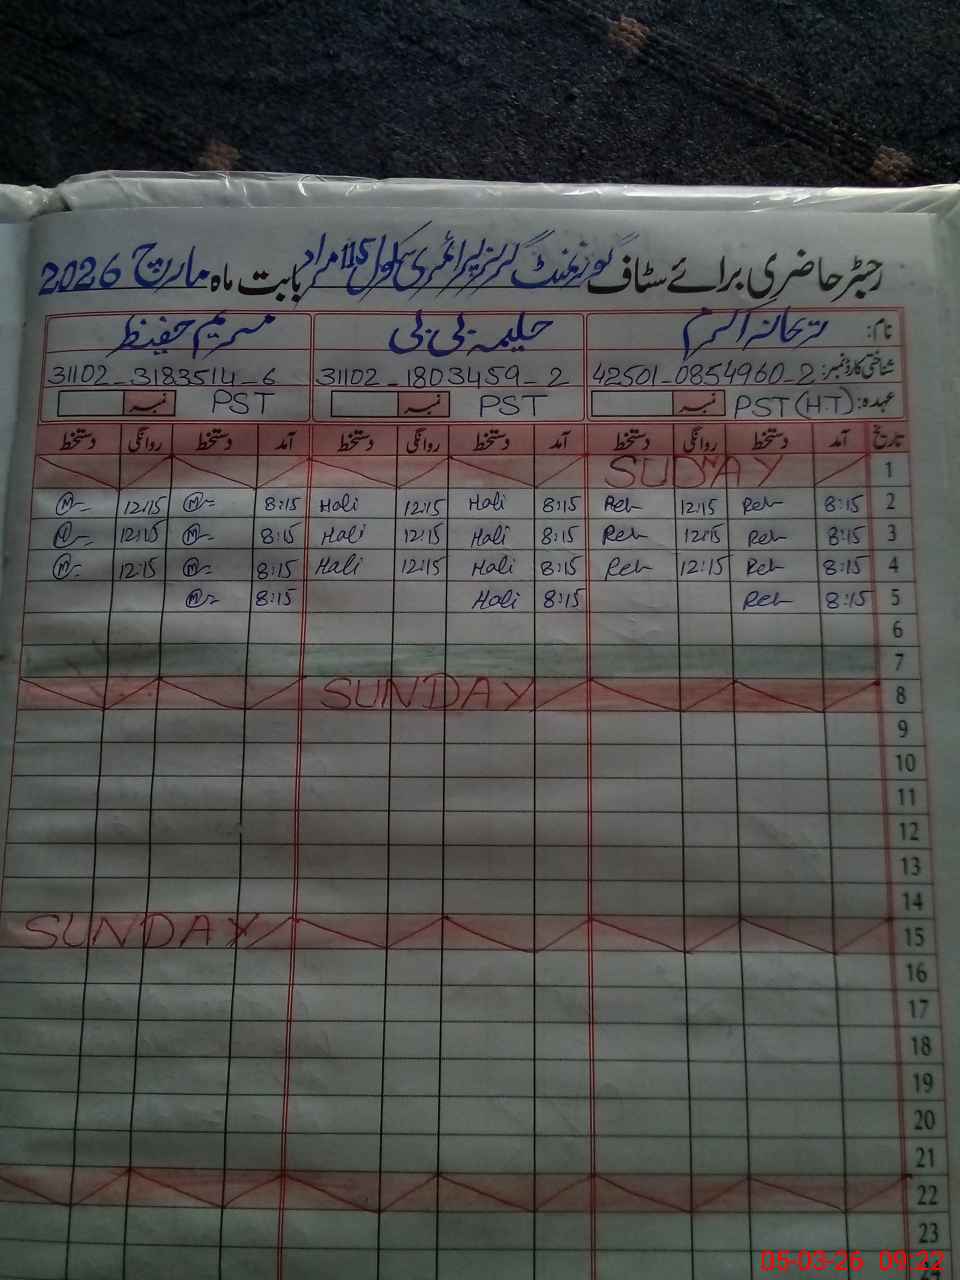 رجسٹر حاضری برائے سٹاف گورنمنٹ گرلز پرائمری سکول 115 مراد بابت ماہ مارچ 2026
نام: ریحانہ اکرم حلیمہ بی بی مریم حفیظ
شناختی کارڈ نمبر: 42501-0854960-2 31102-1803459-2 31102-3183514-6
عہدہ: PST (H.T) نمبر PST نمبر PST نمبر
تاریخ آمد دستخط روانگی دستخط آمد دستخط روانگی دستخط آمد دستخط روانگی دستخط
1 SUNDAY
2 8:15 Reh 12:15 Reh 8:15 Hali 12:15 Hali 8:15 M 12:15 M
3 8:15 Reh 12:15 Reh 8:15 Hali 12:15 Hali 8:15 M 12:15 M
4 8:15 Reh 12:15 Reh 8:15 Hali 12:15 Hali 8:15 M 12:15 M
5 8:15 Reh 8:15 Hali 8:15 M
6
7
8 SUNDAY
9
10
11
12
13
14
15 SUNDAY
16
17
18
19
20
21
22
23
24
05-03-26 09:22